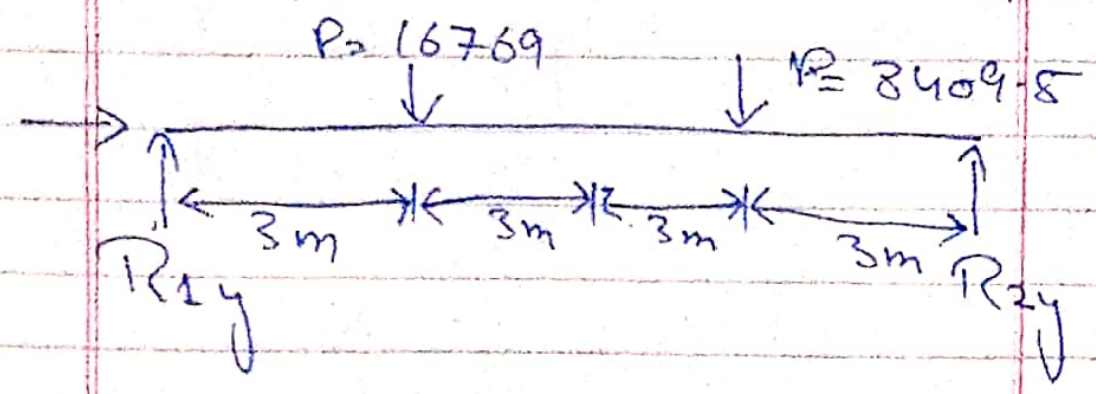 P= 16769
P= 8409.5
3m 3m 3m 3m
R1y R2y